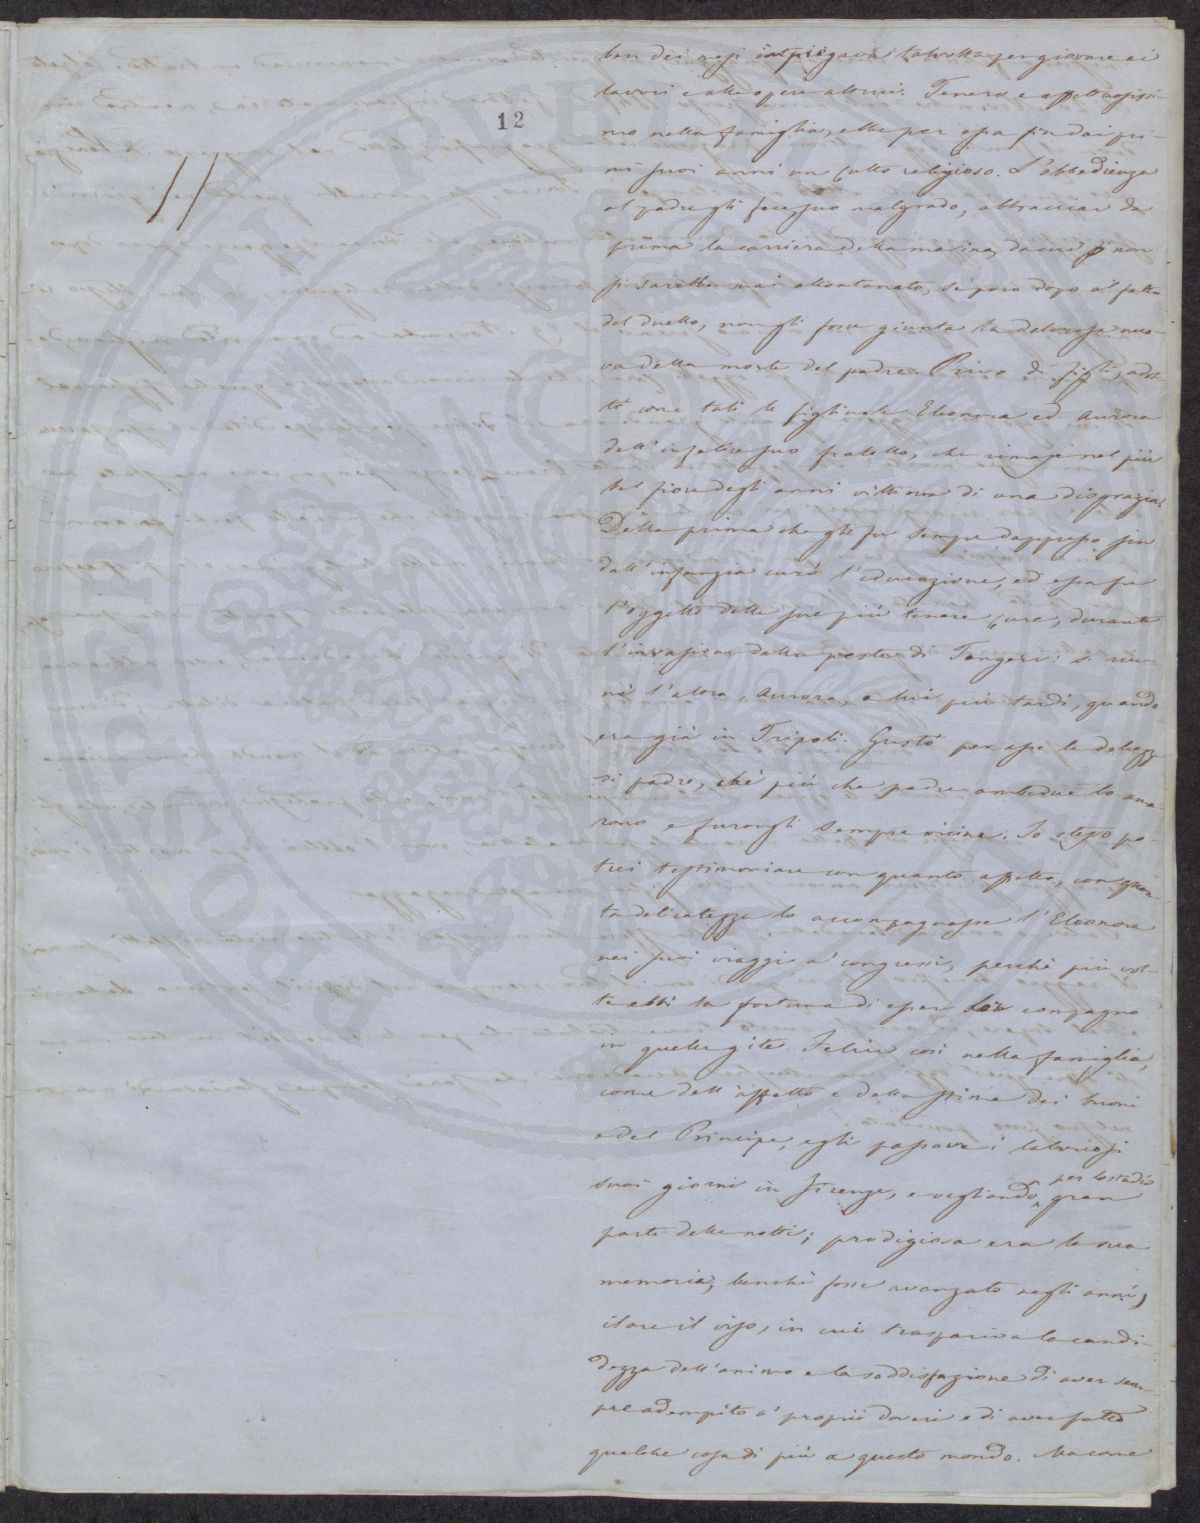 12
ben dei resi impiegava talvolta per giovare ai
lavori e alle opere altrui. Tenero e affettuosissi-
mo nella famiglia, ebbe per essa fin dai pri-
mi suoi anni un culto religioso. L'obbedienza
al padre gli fece, suo malgrado, abbracciar da
prima la carriera della marina, da cui non
si sarebbe mai allontanato, se poco dopo il fatto
del duello, non gli fosse giunta la dolorosa nuo
va della morte del padre. Privo di figli, adot-
tò come tali le figliuole Eleonora ed Aurora
dell'infelice suo fratello, che rimase nel più
bel fiore degli anni vittima di una disgrazia.
Della prima che gli fu sempre dappresso fin
dall'infanzia curò l'educazione, ed essa fu
l'oggetto delle sue più tenere cure, durante
l'invasione della peste di Tangeri: si riu-
nì l'altra, Aurora, a lui più tardi, quando
era già in Tripoli. Gustò per esse le dolcezze
di padre, chè più che padre ambedue lo ama-
rono e furongli sempre vicine. Io stesso po-
trei testimoniare con quanto affetto, con quan-
ta delicatezza lo accompagnasse l'Eleonora
nei suoi viaggi a' congressi, perchè più vol-
te ebbi la fortuna di esser loro compagno
in quelle gite. Felice così nella famiglia,
come dell'affetto e della stima dei buoni
e del Principe, egli passava i laboriosi
suoi giorni in Firenze, e vegliando per lo studio gran
parte delle notti; prodigiosa era la sua
memoria, benchè fosse avanzato negli anni,
ilare il viso, in cui traspariva la candi-
dezza dell'animo e la soddisfazione di aver sem-
pre adempito a' proprii doveri e di aver fatto
qualche cosa di più a questo mondo. Ma come
PROSPERITATI PUBLICAE